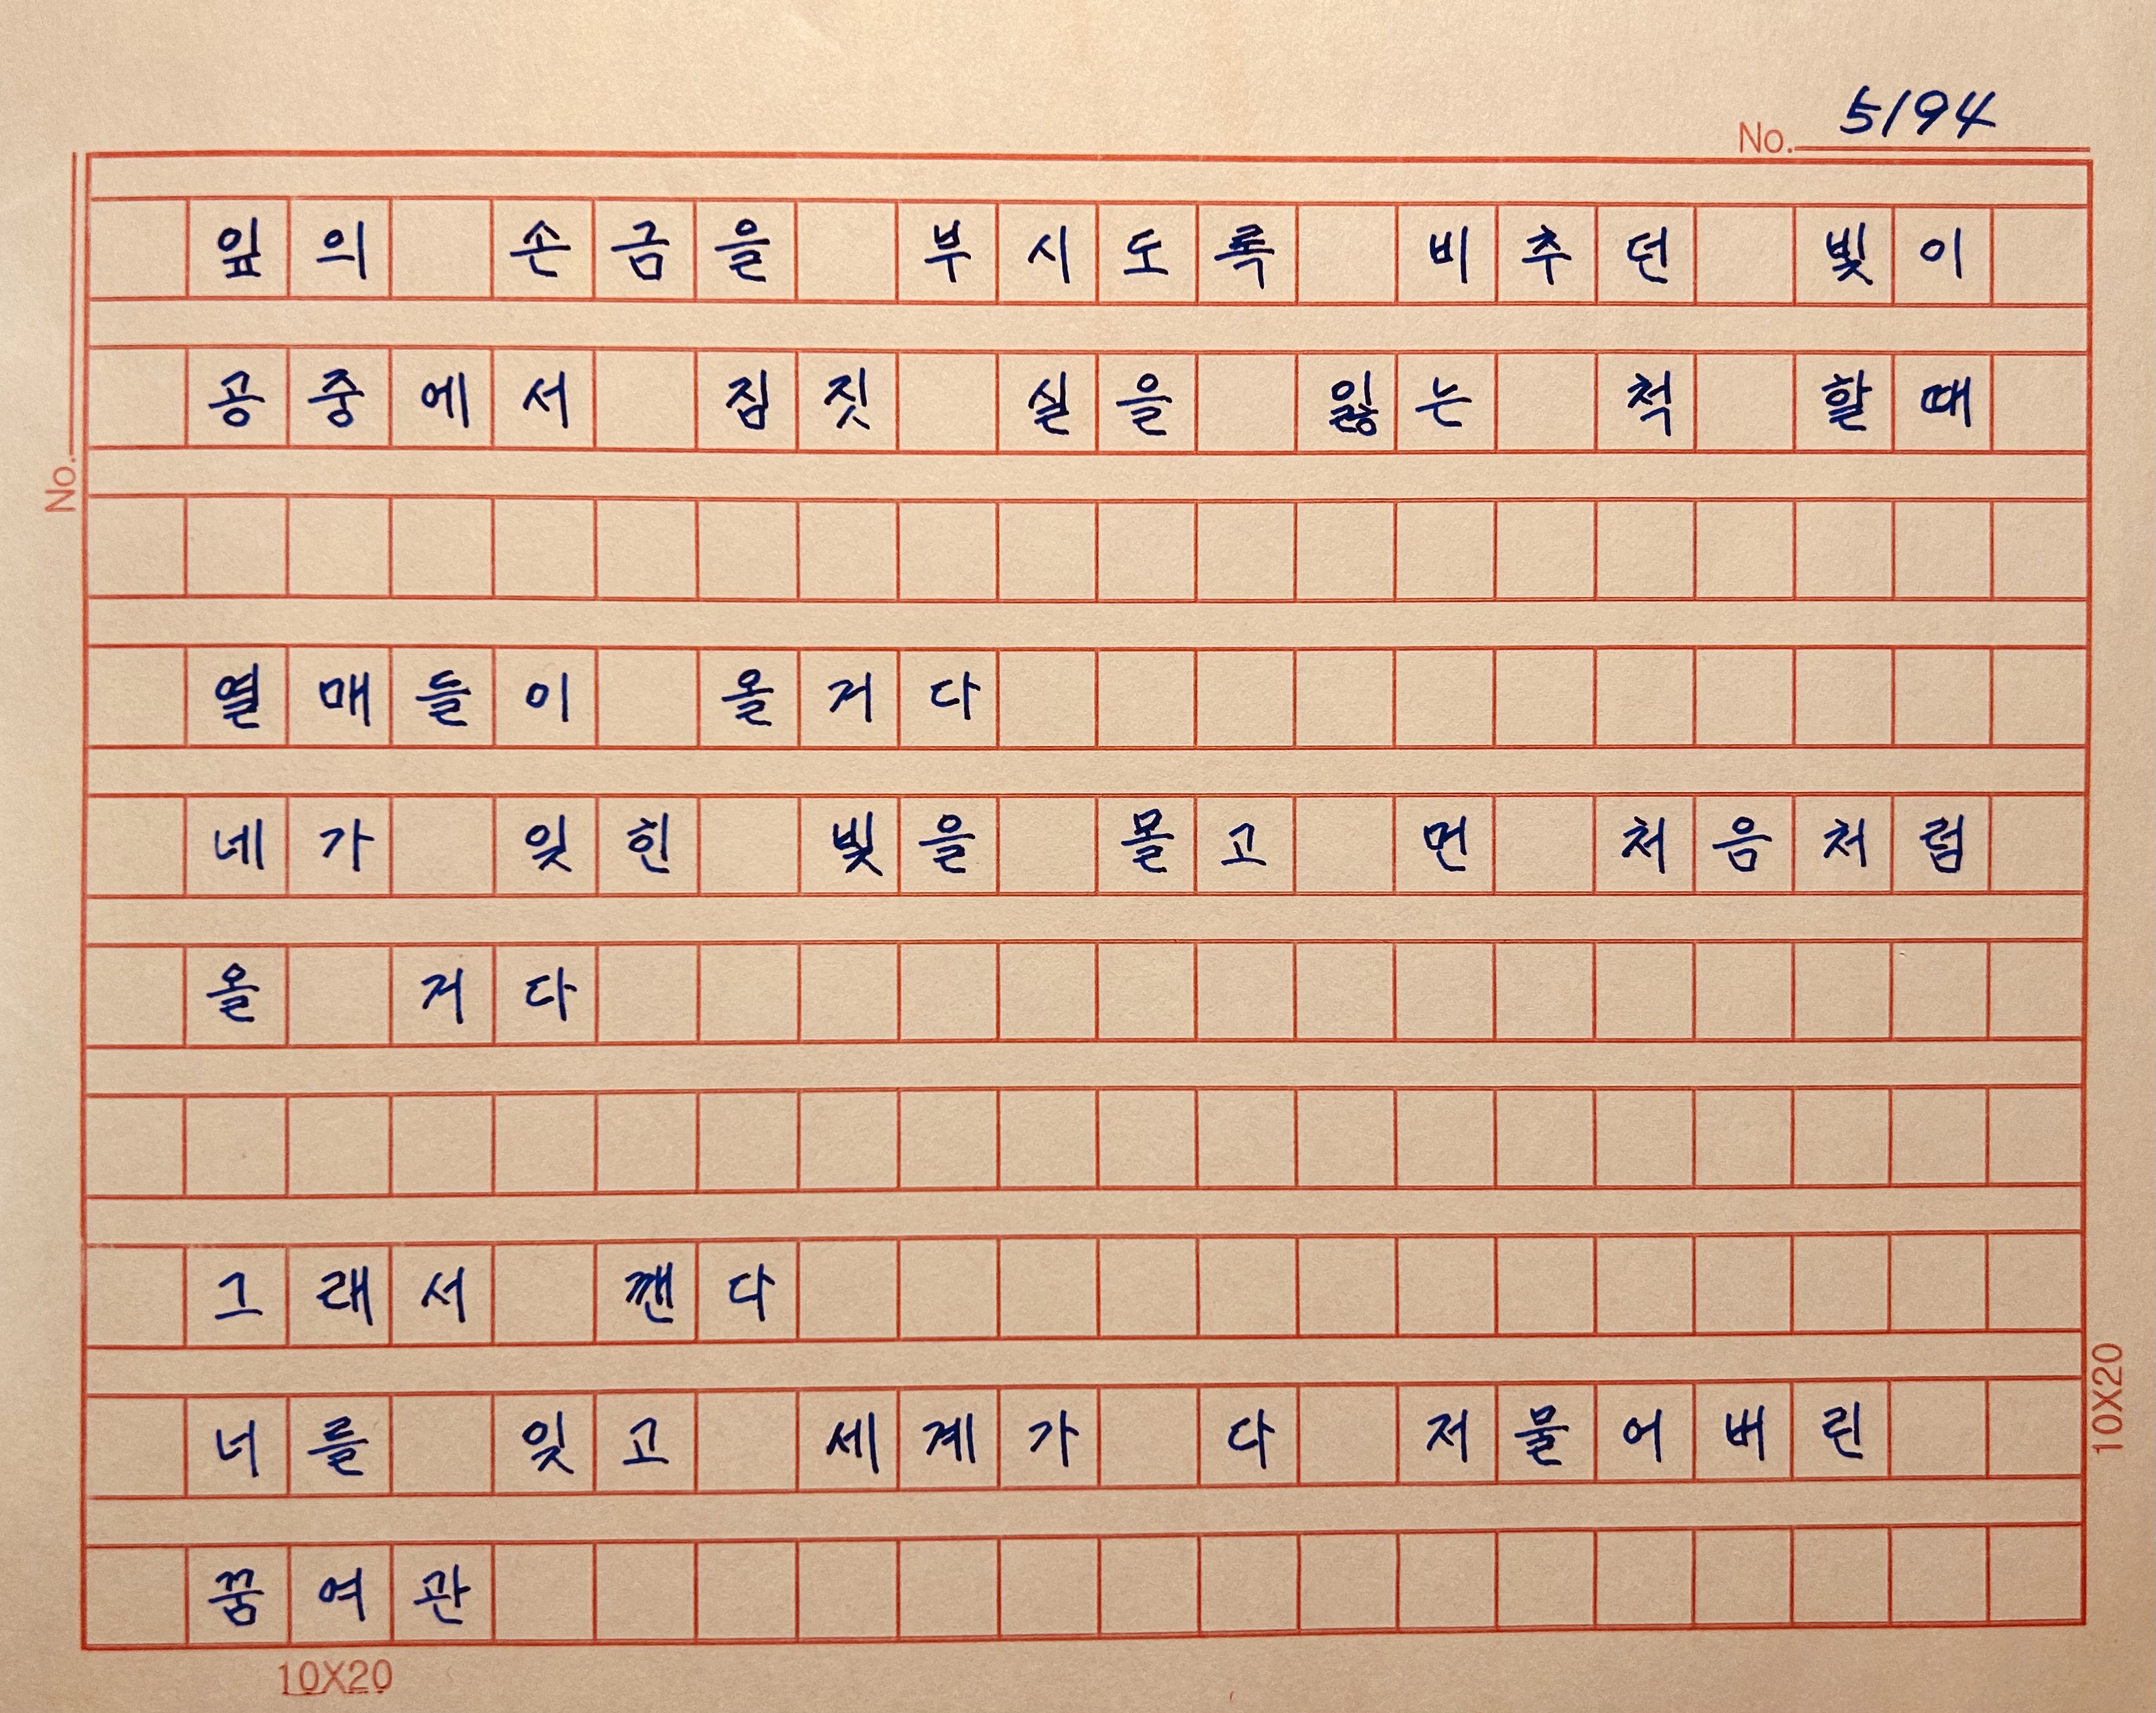 No. 5194
잎의 손금을 부시도록 비추던 빛이
공중에서 짐짓 실을 잃는 척 할 때
No.
열매들이 올거다
네가 잊힌 빛을 몰고 먼 처음처럼
올 거다
그래서 깬다
너를 잊고 세계가 다 저물어버린
꿈여관
10X20
10X20